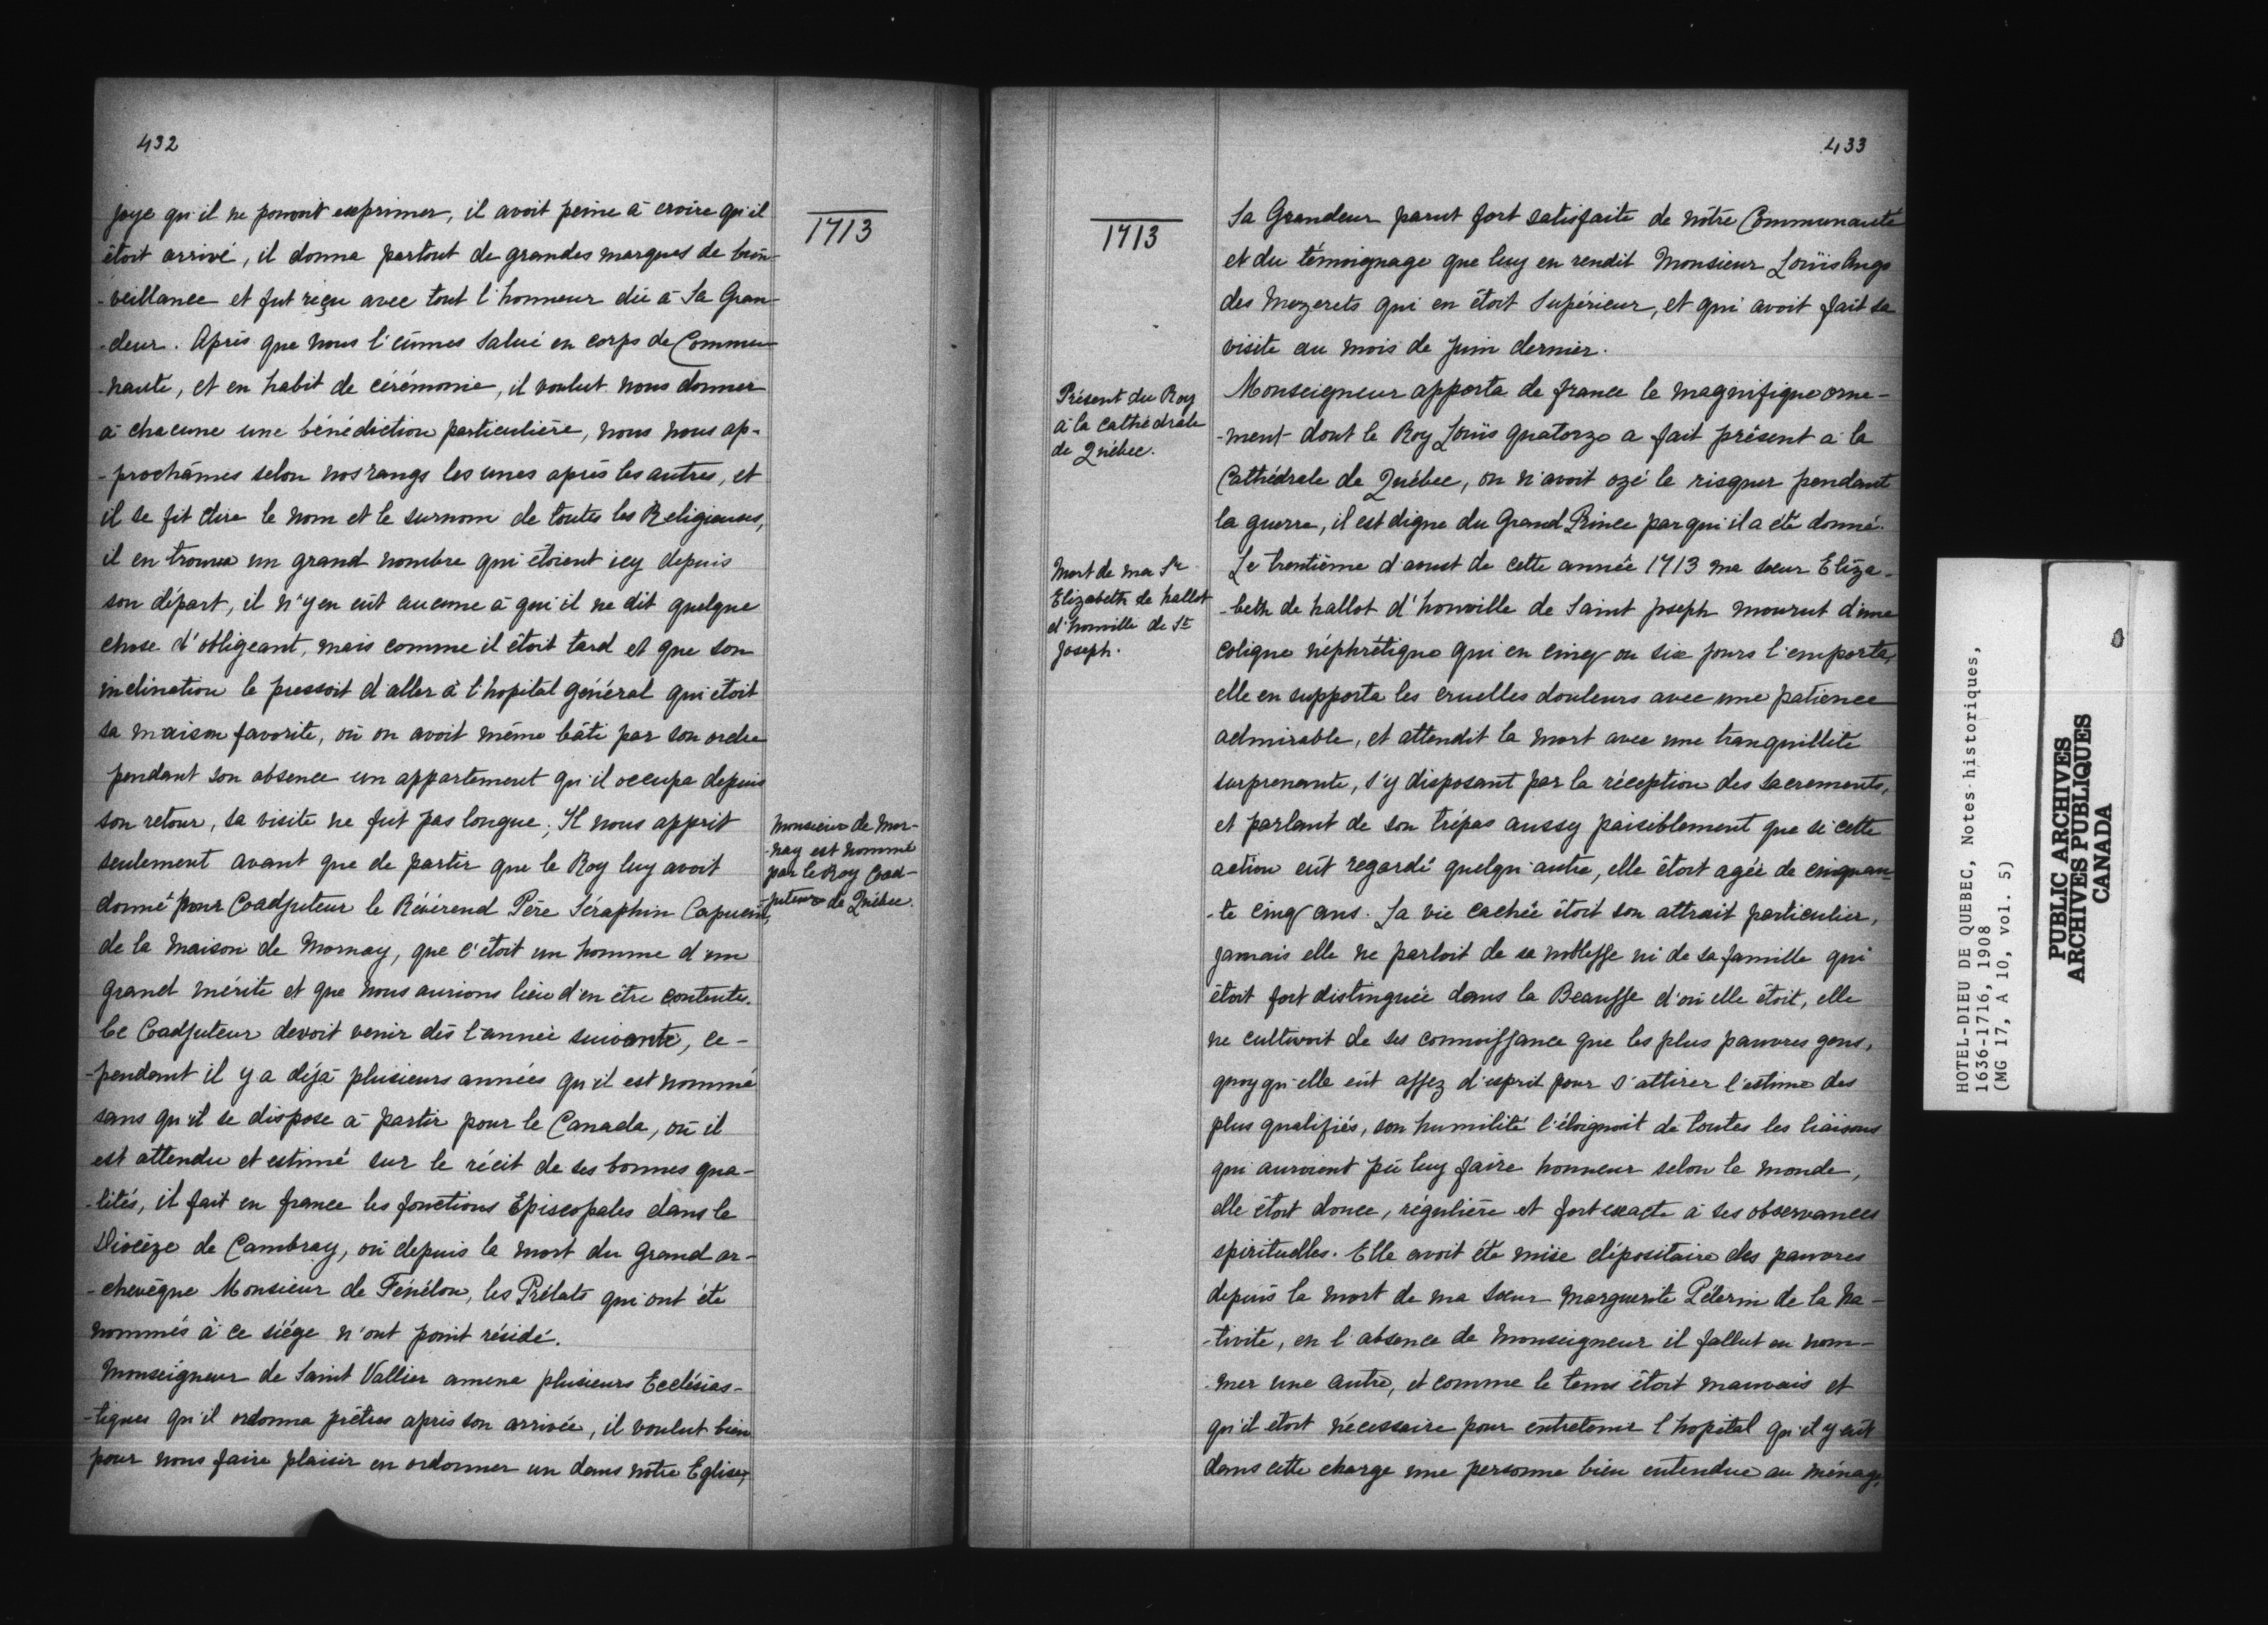 432
joye qu'il ne pouvoit exprimer, il avoit peine à croire qu'il
étoit arrivé, il donna partout de grandes marques de bien-
-veillance et fut reçu avec tout l'honneur dû à Sa Gran-
-deur. Après que nous l'eûmes salué en corps de Commu-
-nauté, et en habit de cérémonie, il voulut nous donner
à chacune une bénédiction particulière, nous nous ap-
-prochâmes selon nos rangs les unes après les autres, et
il se fit dire le nom et le surnom de toutes les Religieuses,
il en trouva un grand nombre qui étoient icy depuis
son départ, il n'y en eût aucune à qui il ne dit quelque
chose d'obligeant, mais comme il étoit tard et que son
inclination le pressoit d'aller à l'hopital général qui étoit
sa maison favorite, où on avoit même bâti par son ordre
pendant son absence un appartement qu'il occupa depuis
son retour, sa visite ne fut pas longue; Il nous apprit
seulement avant que de partir que le Roy luy avoit
donné pour Coadjuteur le Révérend Père Séraphin Capucin,
de la Maison de Mornay, que c'étoit un homme d'un
grand mérite et que nous aurions lieu d'en être contentes.
Ce Coadjuteur devoit venir dès l'année suivante, ce-
-pendant il y a déjà plusieurs années qu'il est nommé
sans qu'il se dispose à partir pour le Canada, où il
est attendu et estimé sur le récit de ses bonnes qua-
-lités, il fait en france les fonctions Episcopales dans le
Diocèze de Cambray, où depuis la mort du Grand ar-
-chevêque Monsieur de Fénélon, les Prélats qui ont été
nommés à ce siége n'ont point résidé.
Monseigneur de Saint Vallier amena plusieurs Ecclésias-
-tiques qu'il ordonna prêtres après son arrivée, il voulut bien
pour nous faire plaisir en ordonner un dans nôtre Eglise,
1713
Monsieur de Mor-
-nay est nommé
par le Roy Coad-
juteur de Québec.
433
1713
Présent du Roy
à la cathédrale
de Québec.
Mort de ma Sr
Elizabeth de hallot
d'honville de St
Joseph.
Sa Grandeur parut fort satisfaite de nôtre Communauté
et du témoignage que luy en rendit Monsieur Loüis Ango
des Mezerets qui en étoit Supérieur, et qui avoit fait sa
visite au mois de Juin dernier.
Monseigneur apporta de france le magnifique orne-
-ment dont le Roy Loüis quatorze a fait présent à la
Cathédrale de Québec, on n'avoit ozé le risquer pendant
la guerre, il est digne du Grand Prince par qui il a été donné.
Le trentième d'aout de cette année 1713 ma sœur Eliza-
-beth de hallot d'honville de Saint Joseph mourut d'une
colique néphrétique qui en cinq ou six jours l'emporta,
elle en supporta les cruelles douleurs avec une patience
admirable, et attendit la mort avec une tranquillité
surprenante, s'y disposant par la réception des Sacrements,
et parlant de son trépas aussy paisiblement que si cette
action eût regardé quelqu'autre, elle étoit agée de cinquan-
-te cinq ans. La vie cachée étoit son attrait particulier,
jamais elle ne parloit de sa noblesse ni de sa famille qui
étoit fort distinguée dans la Beausse d'où elle étoit, elle
ne cultivoit de ses connoissance que les plus pauvres gens,
quoy qu'elle eût assez d'esprit pour s'attirer l'estime des
plus qualifiés, son humilité l'éloignoit de toutes les liaisons
qui auroient pû luy faire honneur selon le monde,
elle étoit douce, régulière et fort exacte à ses observances
spirituelles. Elle avoit été mise dépositaire des pauvres
depuis la mort de ma Sœur Marguerite Pélerin de la Na-
-tivité, en l'absence de Monseigneur il fallut en nom-
-mer une autre, et comme le tems étoit mauvais et
qu'il étoit nécessaire pour entretenir l'hopital qu'il y eût
dans cette charge une personne bien entendue au ménage,
HOTEL-DIEU DE QUEBEC, Notes historiques,
1636-1716, 1908
(MG 17, A 10, vol. 5)
PUBLIC ARCHIVES
ARCHIVES PUBLIQUES
CANADA